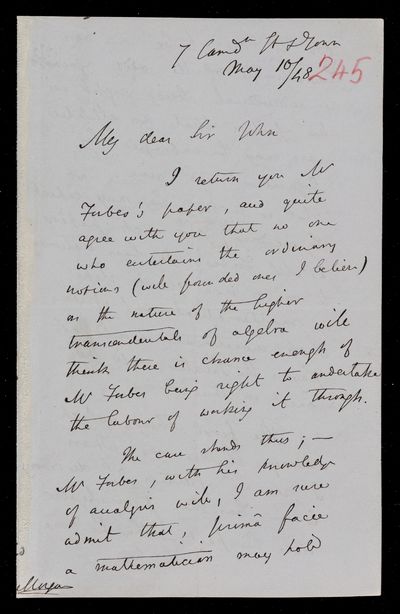 7 Camdn St & Town
May 10/48 245
My dear Sir John
I return you Mr
Forbes's paper, and quite
agree with you that no one
who entertains the ordinary
notions (well founded ones I believe)
on the nature of the higher
transcendentals of algebra will
think there is chance enough of
Mr Forbes being right to undertake
the labour of working it through.
The case stands thus; —
Mr Forbes, with his knowledge
of analysis will, I am sure
admit that, primâ facie
a mathematician may hold
Morgan